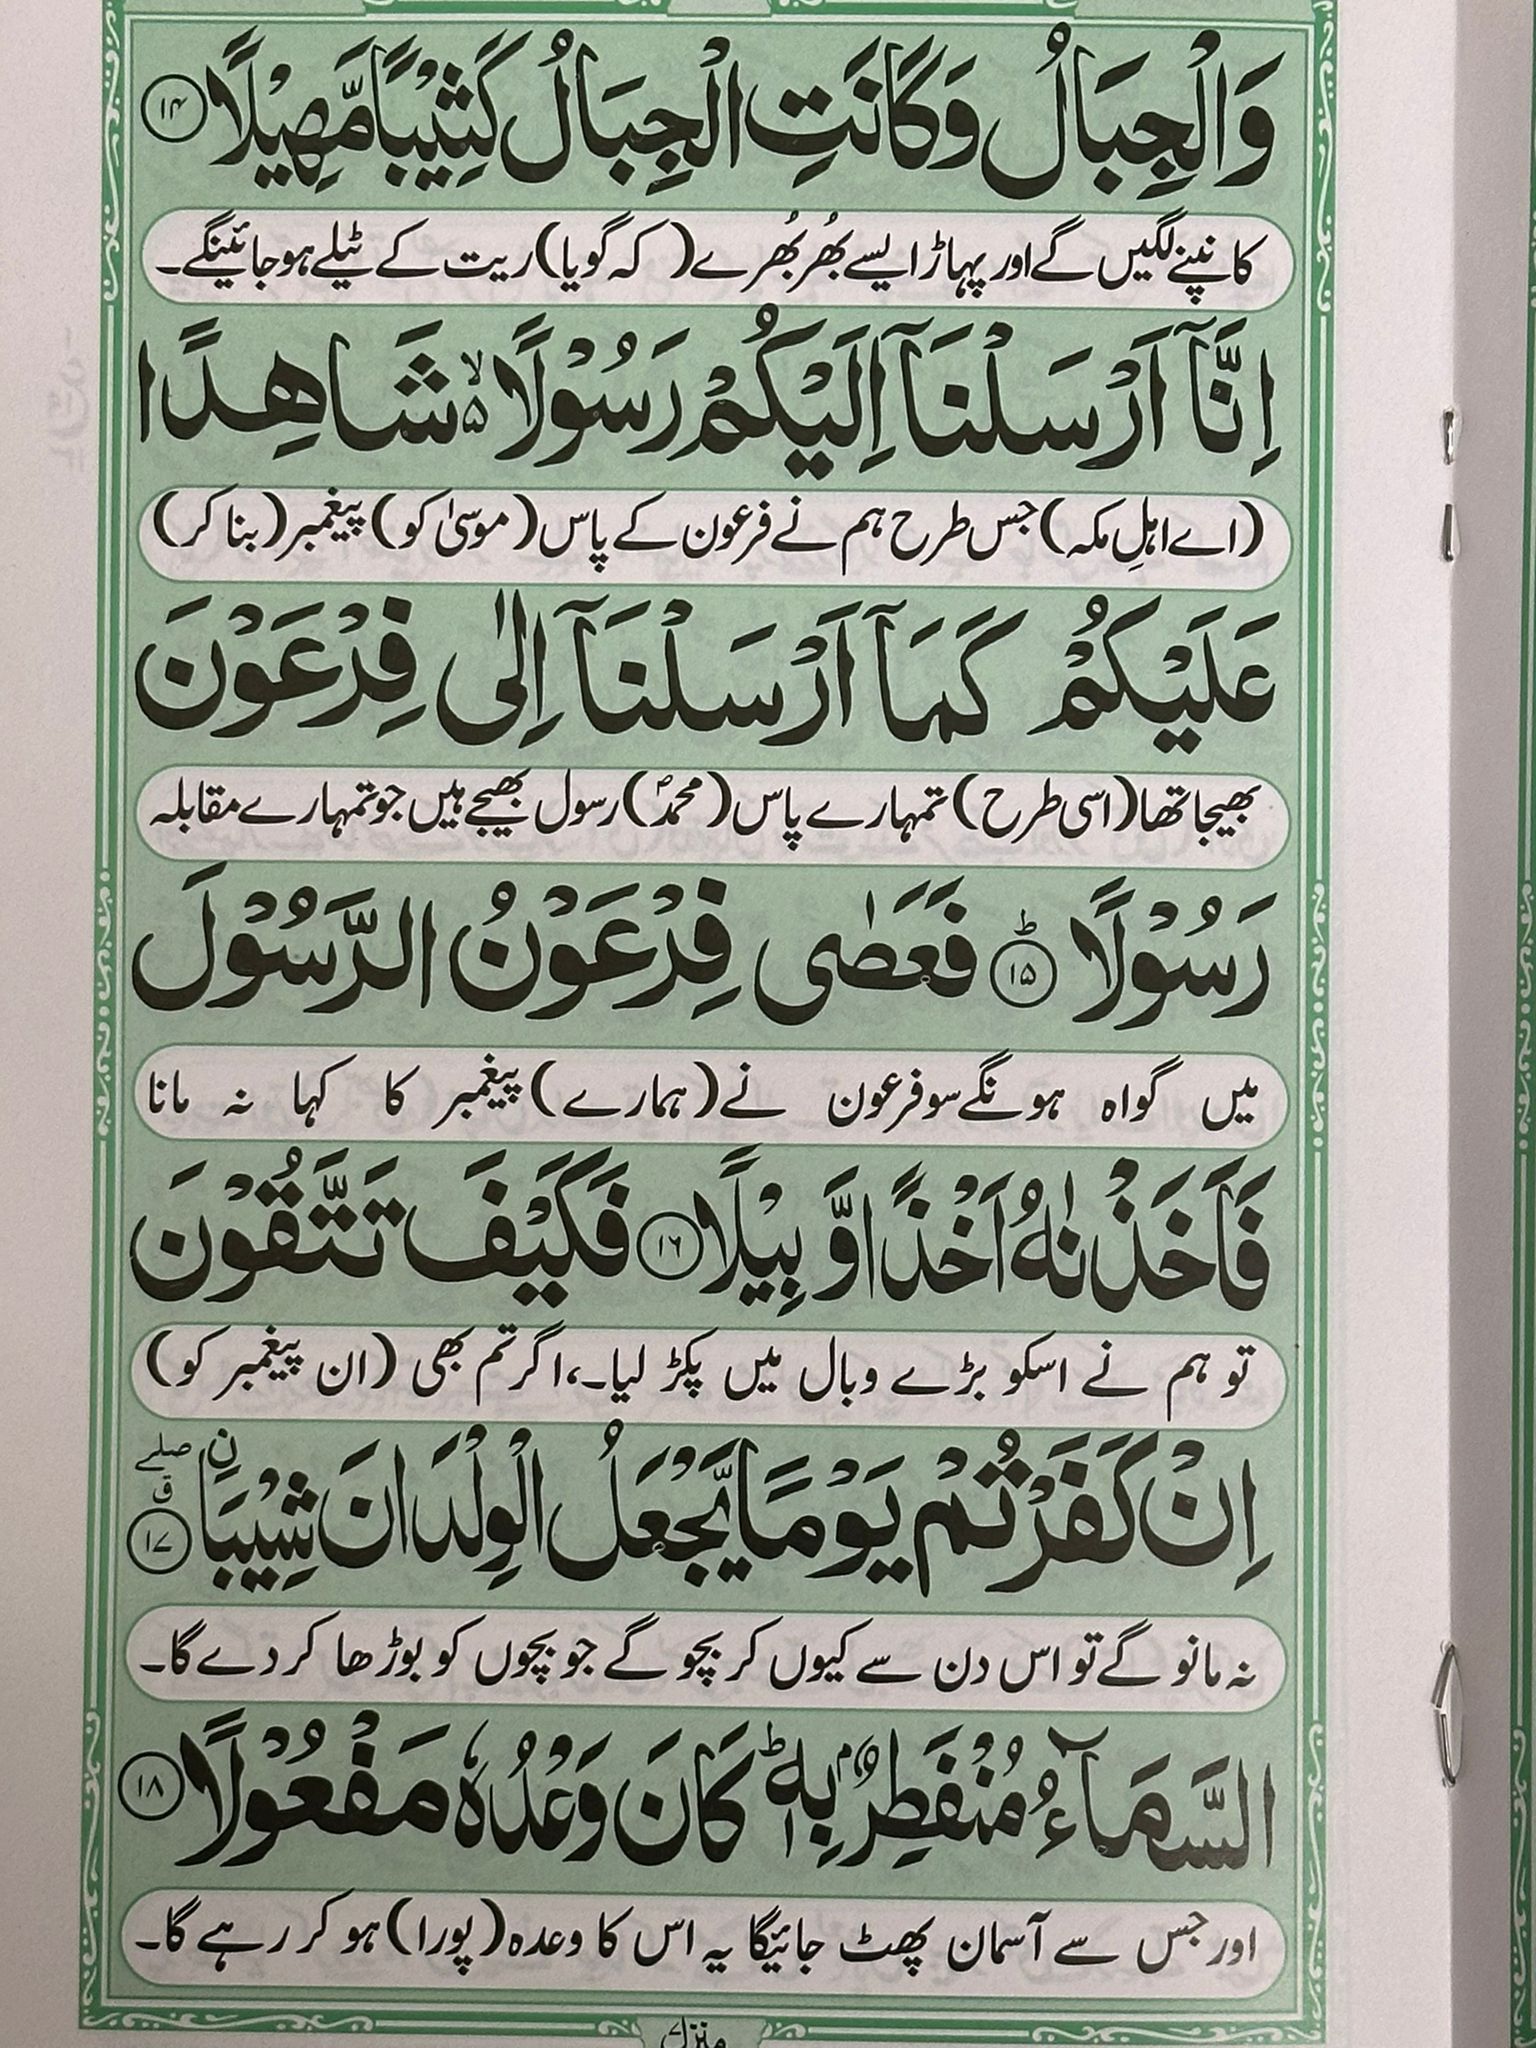 وَالْجِبَالُ وَكَانَتِ الْجِبَالُ كَثِيْبًا مَّهِيْلًا ﴿۱۴﴾
کانپنے لگیں گے اور پہاڑ ایسے بُھربُھرے (کہ گویا) ریت کے ٹیلے ہو جائینگے۔
اِنَّاۤ اَرْسَلْنَاۤ اِلَيْكُمْ رَسُوْلًا ۙ۵ شَاهِدًا
(اے اہلِ مکہ) جس طرح ہم نے فرعون کے پاس (موسیٰ کو) پیغمبر (بنا کر)
عَلَيْكُمْ كَمَاۤ اَرْسَلْنَاۤ اِلٰى فِرْعَوْنَ
بھیجا تھا (اسی طرح) تمہارے پاس (محمدؐ) رسول بھیجے ہیں جو تمہارے مقابلہ
رَسُوْلًا ﴿۱۵﴾ؕ فَعَصٰى فِرْعَوْنُ الرَّسُوْلَ
میں گواہ ہونگے سو فرعون نے (ہمارے) پیغمبر کا کہا نہ مانا
فَاَخَذْنٰهُ اَخْذًا وَّبِيْلًا ﴿۱۶﴾ فَكَيْفَ تَتَّقُوْنَ
تو ہم نے اسکو بڑے وبال میں پکڑ لیا۔، اگر تم بھی (ان پیغمبر کو)
اِنْ كَفَرْتُمْ يَوْمًا يَّجْعَلُ الْوِلْدَانَ شِيْبَا ۨ ﴿۱۷﴾ ق صلے
نہ مانو گے تو اس دن سے کیوں کر بچو گے جو بچوں کو بوڑھا کر دے گا۔
السَّمَآءُ مُنْفَطِرٌۢ بِهٖ ؕ كَانَ وَعْدُهٗ مَفْعُوْلًا ﴿۱۸﴾
اور جس سے آسمان پھٹ جائیگا یہ اس کا وعدہ (پورا) ہو کر رہے گا۔